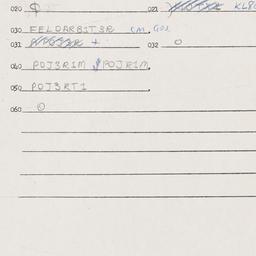 020 $ 021 KL8
030 FELDARBITER CM. GOS
031 + 032 0
040 POJ3R1M $ POJR1M.
050 POJ3RT1
060 0